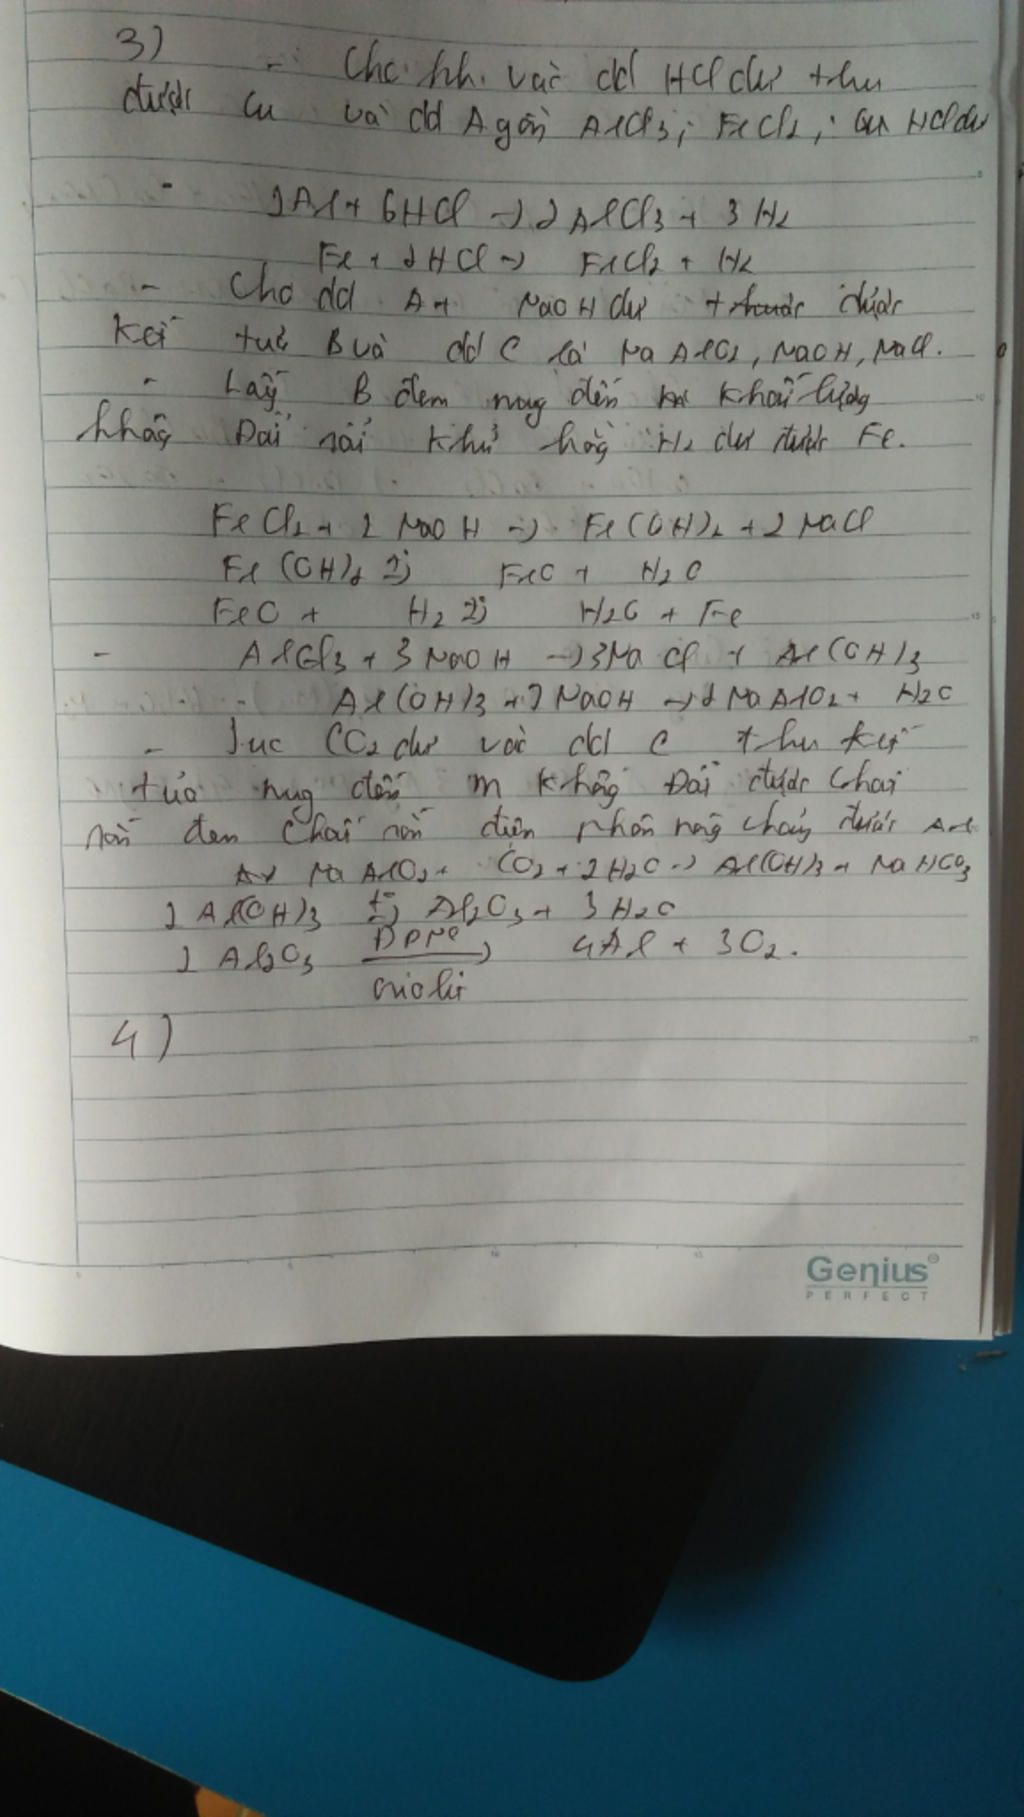 3)
- Cho hh vào dd HCl dư thu
được Cu và dd A gồm AlCl3; FeCl2; HCl dư
- 2Al + 6HCl -> 2AlCl3 + 3H2
Fe + 2HCl -> FeCl2 + H2
- Cho dd A + NaOH dư được
Kết tủa B và dd C là NaAlO2, NaOH, NaCl.
- Lấy B đem nung đến khối lượng
không Đổi rồi khử bằng H2 dư được Fe.
FeCl2 + 2NaOH -> Fe(OH)2 + 2NaCl
Fe(OH)2 -> FeO + H2O
FeO + H2 -> H2O + Fe
- AlCl3 + 3NaOH -> 3NaCl + Al(OH)3
Al(OH)3 + NaOH -> NaAlO2 + H2O
- Sục CO2 dư vào dd C thu kết
tủa nung đến m không Đổi được chất
rắn đem chất rắn điện phân nóng chảy được Al
NaAlO2 + CO2 + 2H2O -> Al(OH)3 + NaHCO3
2Al(OH)3 t° -> Al2O3 + 3H2O
2Al2O3 ĐPNC -> 4Al + 3O2.
criolit
4)
Genius
PERFECT